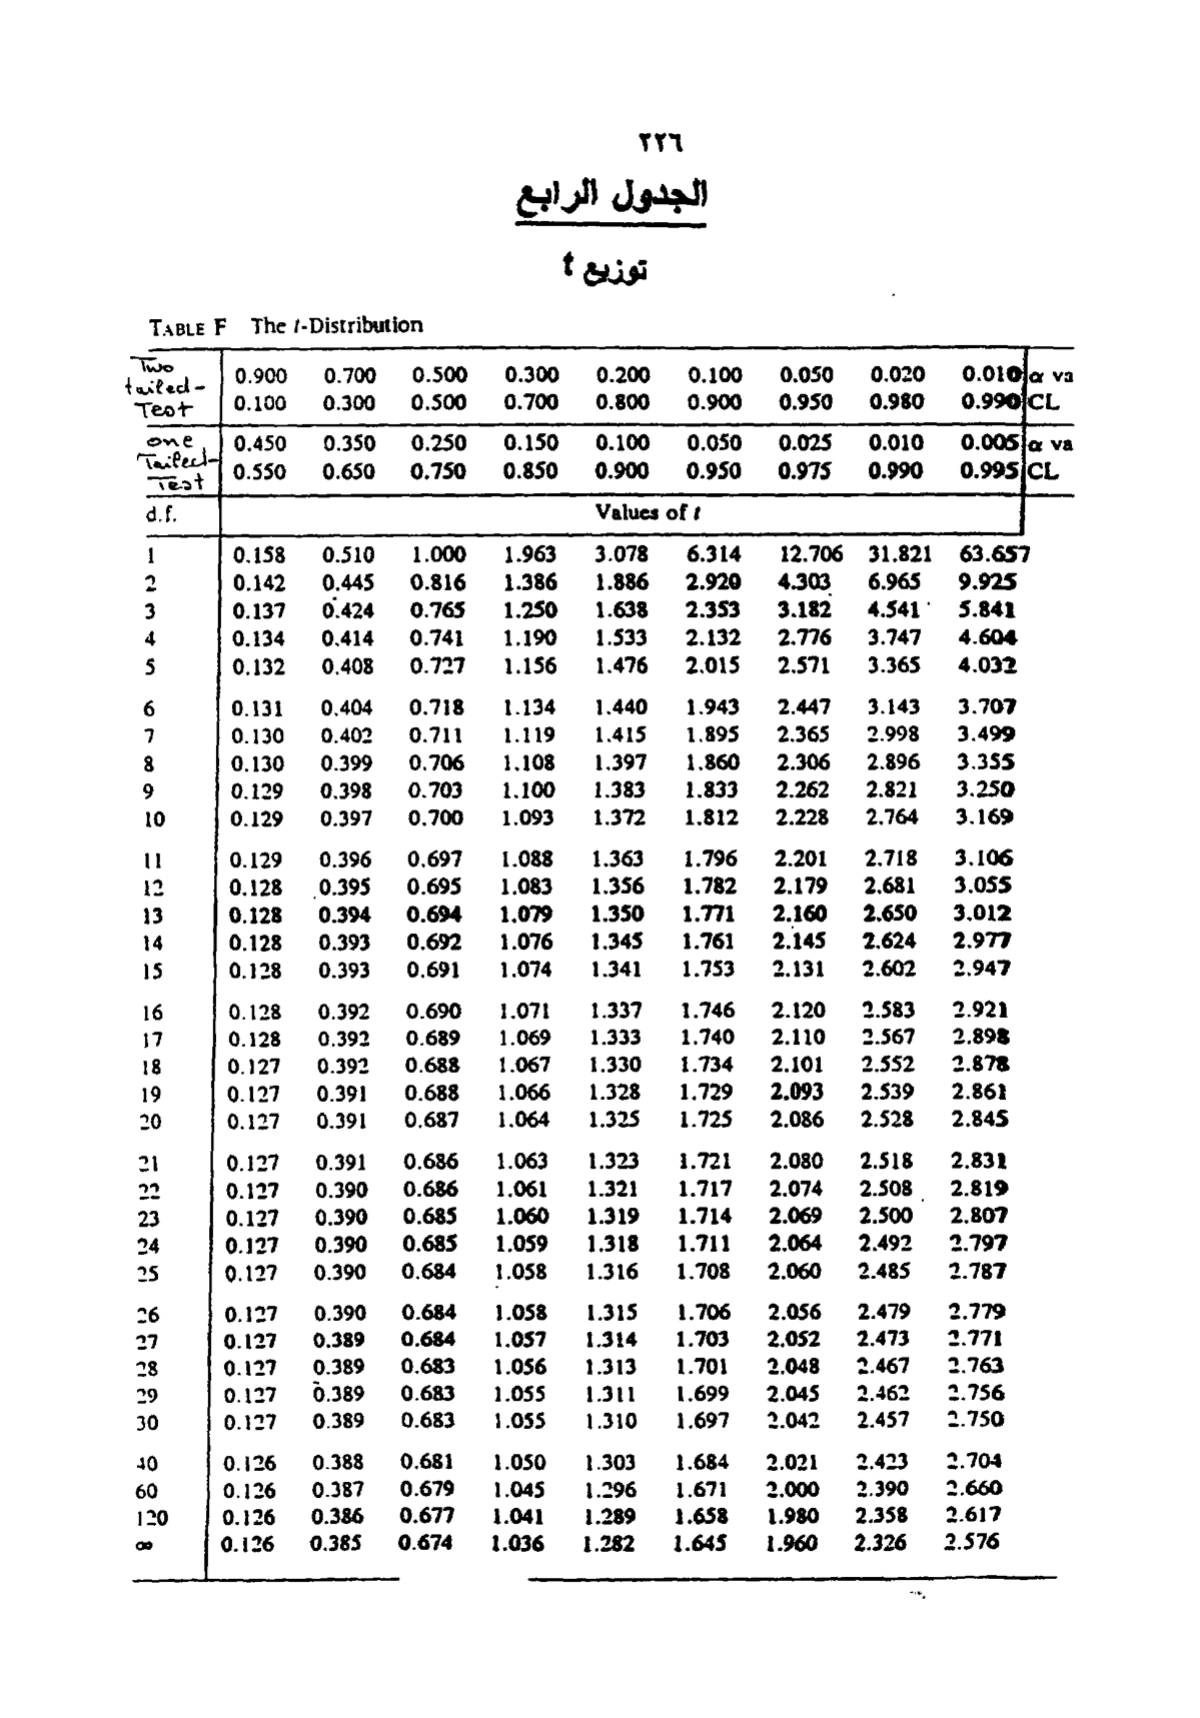 ٢٢٦
الجدول الرابع
توزيع t
TABLE F The t-Distribution
Two tailed- Test 0.900 0.700 0.500 0.300 0.200 0.100 0.050 0.020 0.010 α va
0.100 0.300 0.500 0.700 0.800 0.900 0.950 0.980 0.990 CL
one Tailed- Test 0.450 0.350 0.250 0.150 0.100 0.050 0.025 0.010 0.005 α va
0.550 0.650 0.750 0.850 0.900 0.950 0.975 0.990 0.995 CL
d.f. Values of t
1 0.158 0.510 1.000 1.963 3.078 6.314 12.706 31.821 63.657
2 0.142 0.445 0.816 1.386 1.886 2.920 4.303 6.965 9.925
3 0.137 0.424 0.765 1.250 1.638 2.353 3.182 4.541 5.841
4 0.134 0.414 0.741 1.190 1.533 2.132 2.776 3.747 4.604
5 0.132 0.408 0.727 1.156 1.476 2.015 2.571 3.365 4.032
6 0.131 0.404 0.718 1.134 1.440 1.943 2.447 3.143 3.707
7 0.130 0.402 0.711 1.119 1.415 1.895 2.365 2.998 3.499
8 0.130 0.399 0.706 1.108 1.397 1.860 2.306 2.896 3.355
9 0.129 0.398 0.703 1.100 1.383 1.833 2.262 2.821 3.250
10 0.129 0.397 0.700 1.093 1.372 1.812 2.228 2.764 3.169
11 0.129 0.396 0.697 1.088 1.363 1.796 2.201 2.718 3.106
12 0.128 0.395 0.695 1.083 1.356 1.782 2.179 2.681 3.055
13 0.128 0.394 0.694 1.079 1.350 1.771 2.160 2.650 3.012
14 0.128 0.393 0.692 1.076 1.345 1.761 2.145 2.624 2.977
15 0.128 0.393 0.691 1.074 1.341 1.753 2.131 2.602 2.947
16 0.128 0.392 0.690 1.071 1.337 1.746 2.120 2.583 2.921
17 0.128 0.392 0.689 1.069 1.333 1.740 2.110 2.567 2.898
18 0.127 0.392 0.688 1.067 1.330 1.734 2.101 2.552 2.878
19 0.127 0.391 0.688 1.066 1.328 1.729 2.093 2.539 2.861
20 0.127 0.391 0.687 1.064 1.325 1.725 2.086 2.528 2.845
21 0.127 0.391 0.686 1.063 1.323 1.721 2.080 2.518 2.831
22 0.127 0.390 0.686 1.061 1.321 1.717 2.074 2.508 2.819
23 0.127 0.390 0.685 1.060 1.319 1.714 2.069 2.500 2.807
24 0.127 0.390 0.685 1.059 1.318 1.711 2.064 2.492 2.797
25 0.127 0.390 0.684 1.058 1.316 1.708 2.060 2.485 2.787
26 0.127 0.390 0.684 1.058 1.315 1.706 2.056 2.479 2.779
27 0.127 0.389 0.684 1.057 1.314 1.703 2.052 2.473 2.771
28 0.127 0.389 0.683 1.056 1.313 1.701 2.048 2.467 2.763
29 0.127 0.389 0.683 1.055 1.311 1.699 2.045 2.462 2.756
30 0.127 0.389 0.683 1.055 1.310 1.697 2.042 2.457 2.750
40 0.126 0.388 0.681 1.050 1.303 1.684 2.021 2.423 2.704
60 0.126 0.387 0.679 1.045 1.296 1.671 2.000 2.390 2.660
120 0.126 0.386 0.677 1.041 1.289 1.658 1.980 2.358 2.617
∞ 0.126 0.385 0.674 1.036 1.282 1.645 1.960 2.326 2.576